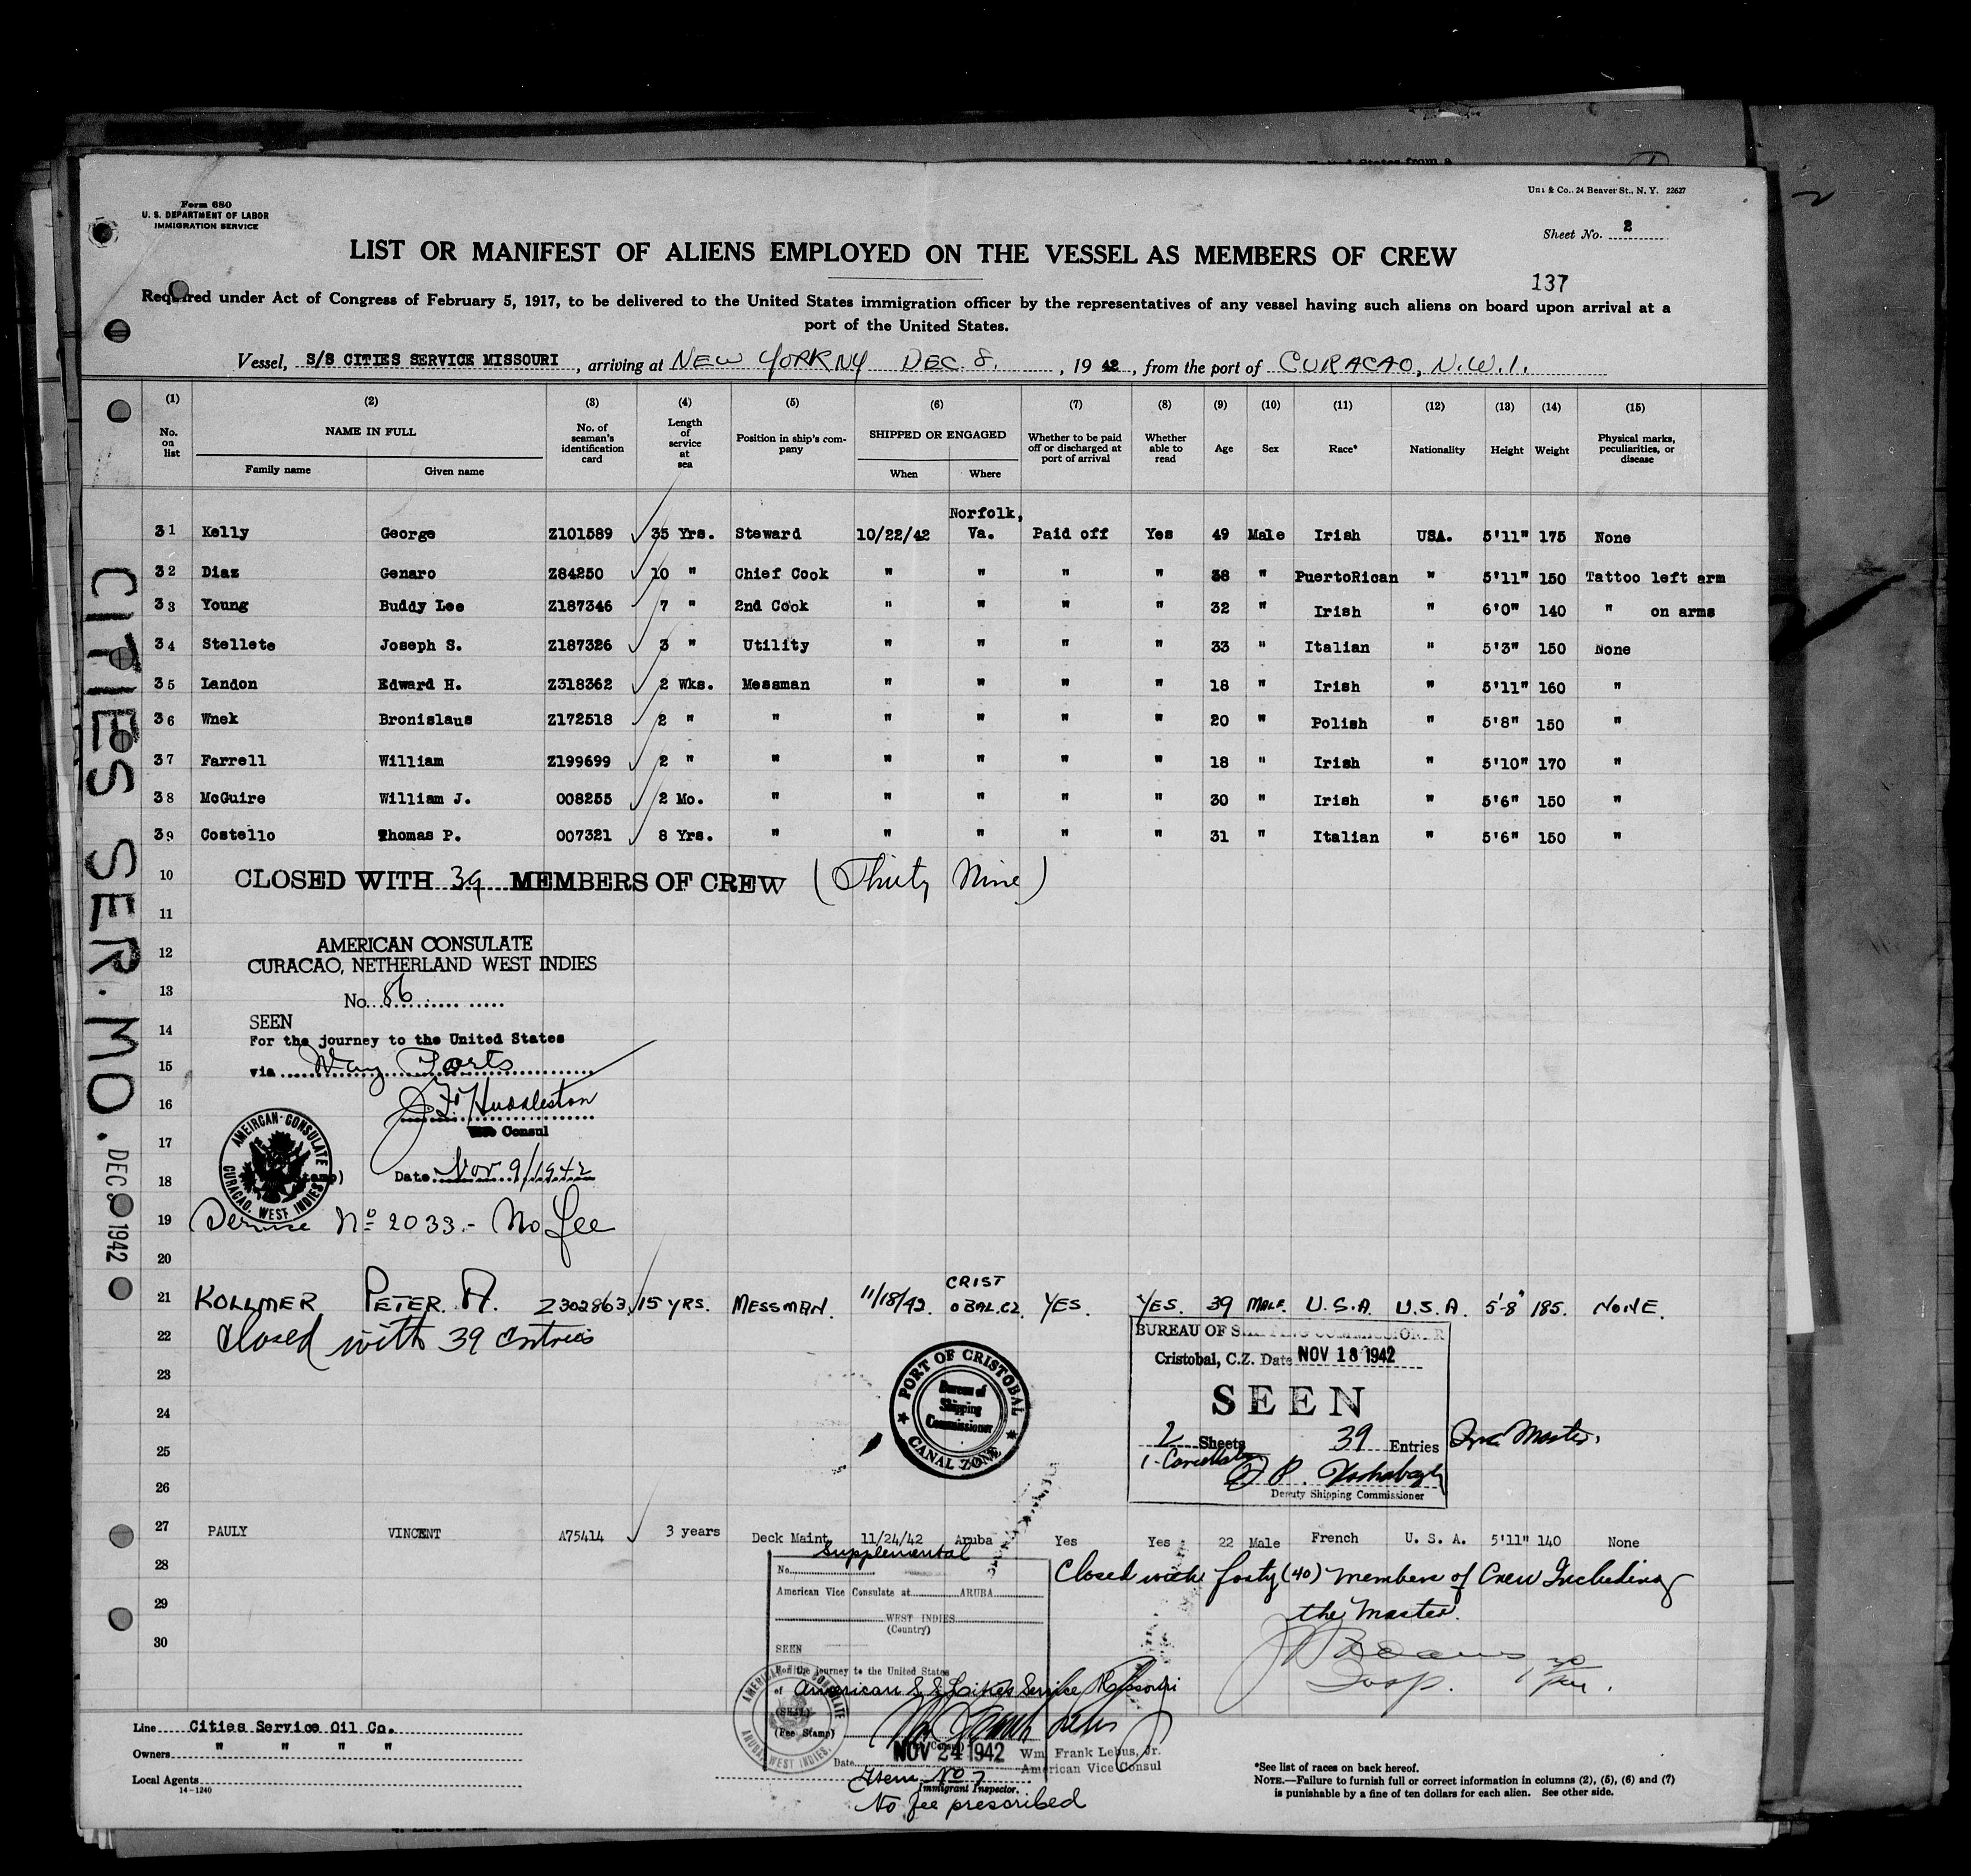 Form 680
U. S. DEPARTMENT OF LABOR
IMMIGRATION SERVICE
Uni & Co., 24 Beaver St., N. Y. 22627
Sheet No. 2
LIST OR MANIFEST OF ALIENS EMPLOYED ON THE VESSEL AS MEMBERS OF CREW
137
Required under Act of Congress of February 5, 1917, to be delivered to the United States immigration officer by the representatives of any vessel having such aliens on board upon arrival at a
port of the United States.
Vessel, S/S CITIES SERVICE MISSOURI, arriving at NEW YORK NY DEC. 8., 1942, from the port of CURACAO, N.W.I.
(1) (2) (3) (4) (5) (6) (7) (8) (9) (10) (11) (12) (13) (14) (15)
No. on list NAME IN FULL Family name Given name No. of seaman's identification card Length of service at sea Position in ship's company SHIPPED OR ENGAGED When Where Whether to be paid off or discharged at port of arrival Whether able to read Age Sex Race* Nationality Height Weight Physical marks, peculiarities, or disease
31 Kelly George Z101589 35 Yrs. Steward 10/22/42 Norfolk, Va. Paid off Yes 49 Male Irish USA. 5'11" 175 None
32 Diaz Genaro Z84250 10 " Chief Cook " " " " 38 " PuertoRican " 5'11" 150 Tattoo left arm
33 Young Buddy Lee Z187346 7 " 2nd Cook " " " " 32 " Irish " 6'0" 140 " on arms
34 Stellete Joseph S. Z187326 3 " Utility " " " " 33 " Italian " 5'3" 150 None
35 Landon Edward H. Z318362 2 Wks. Messman " " " " 18 " Irish " 5'11" 160 "
36 Wnek Bronislaus Z172518 2 " " " " " " 20 " Polish " 5'8" 150 "
37 Farrell William Z199699 2 " " " " " " 18 " Irish " 5'10" 170 "
38 McGuire William J. 008255 2 Mo. " " " " " 30 " Irish " 5'6" 150 "
39 Costello Thomas P. 007321 8 Yrs. " " " " " 31 " Italian " 5'6" 150 "
10 CLOSED WITH 39 MEMBERS OF CREW (Thirty Nine)
11
12 AMERICAN CONSULATE
CURACAO, NETHERLAND WEST INDIES
13 No. 86
14 SEEN
For the journey to the United States
15 via Way Ports
16 J. F. Huddleston
Vice Consul
17
18 Date Nov 9/1942
AMEIRCAN CONSULATE CURACAO, WEST INDIES
19 Service No 2033.- No fee
20
21 KOLLMER PETER A. Z302863 15 YRS. MESSMAN. 11/18/42. CRISTOBAL.CZ YES. YES. 39 MALE. U.S.A. U.S.A. 5'-8" 185. NONE.
22 Closed with 39 Entries
23
24
25
26
BUREAU OF SHIPPING COMMISSIONER
Cristobal, C.Z. Date NOV 18 1942
SEEN
2 Sheets 39 Entries Inc Master.
1-Cancellation
Deputy Shipping Commissioner
PORT OF CRISTOBAL
Bureau of
Shipping
Commissioner
CANAL ZONE
27 PAULY VINCENT A75414 3 years Deck Maint. 11/24/42 Aruba Yes Yes 22 Male French U. S. A. 5'11" 140 None
28
29
30
Supplemental
No.
American Vice Consulate at ARUBA
WEST INDIES
(Country)
SEEN
For the journey to the United States
of American S.S. Cities Service Missouri
(SEAL)
(Fee Stamp)
Date NOV 24 1942
Wm. Frank Lebus, Jr.
American Vice Consul
AMERICAN VICE CONSULATE ARUBA, WEST INDIES.
Item No 7
Immigrant Inspector.
No fee prescribed
Closed with forty (40) members of Crew Including
the Master.
Line Cities Service Oil Co.
Owners " " " "
Local Agents
14-1240
*See list of races on back hereof.
NOTE.—Failure to furnish full or correct information in columns (2), (5), (6) and (7)
is punishable by a fine of ten dollars for each alien. See other side.
CITIES SER. MO. DEC 8 1942